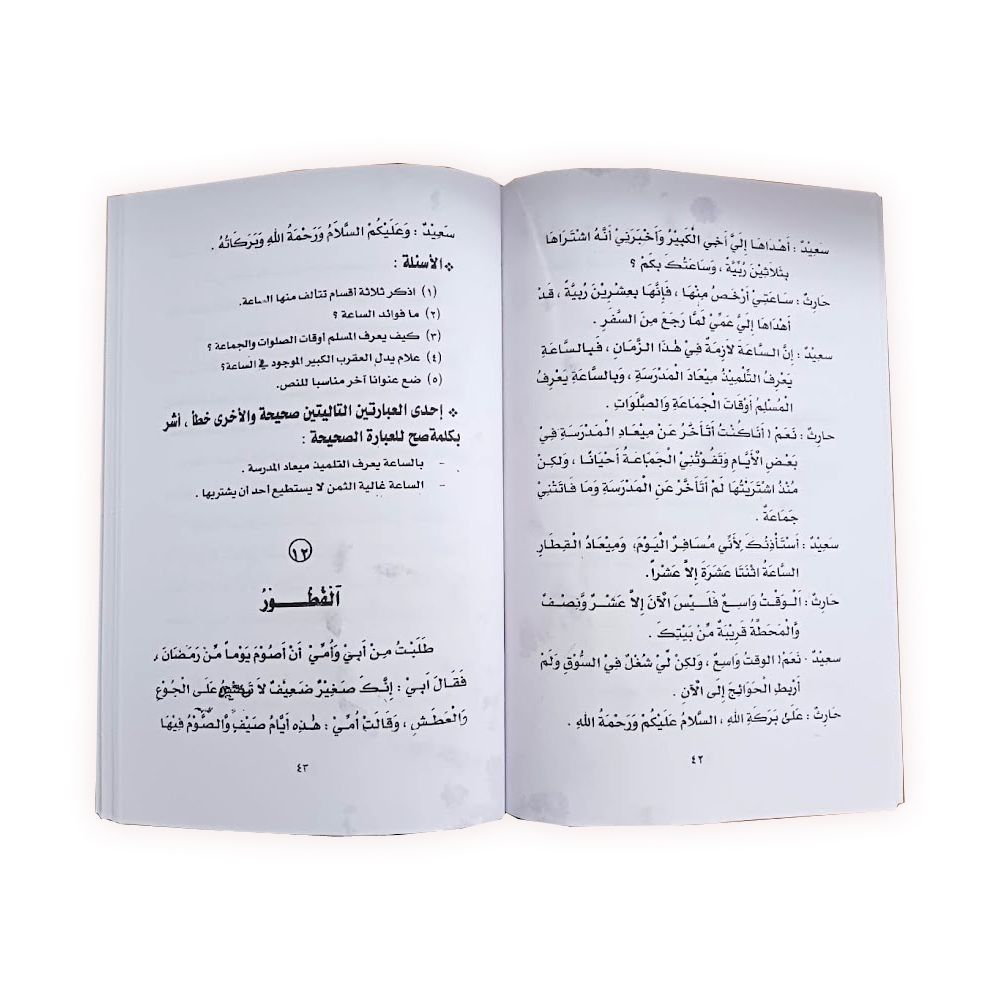 سَعِيْدٌ : أَهْدَاهَا إِلَيَّ أَخِي الْكَبِيْرُ وَأَخْبَرَنِيْ أَنَّهُ اشْتَرَاهَا
بِثَلَاثِيْنَ رُبِّيَّةً ، وَسَاعَتُكَ بِكَمْ ؟
حَارِثٌ : سَاعَتِيْ أَرْخَصُ مِنْهَا ، فَإِنَّهَا بِعِشْرِيْنَ رُبِيَّةً ، قَدْ
أَهْدَاهَا إِلَيَّ عَمِّيْ لَمَّا رَجَعَ مِنَ السَّفَرِ .
سعِيْدٌ : إِنَّ السَّاعَةَ لَازِمَةٌ فِيْ هٰذَا الزَّمَانِ ، فَبِالسَّاعَةِ
يَعْرِفُ التِّلْمِيْذُ مِيْعَادَ الْمَدْرَسَةِ ، وَبِالسَّاعَةِ يَعْرِفُ
الْمُسْلِمُ أَوْقَاتِ الْجَمَاعَةِ وَالصَّلَوَاتِ .
حَارِثٌ : نَعَمْ! أَنَا كُنْتُ أَتَأَخَّرُ عَنْ مِيْعَادِ الْمَدْرَسَةِ فِيْ
بَعْضِ الْأَيَّامِ وَتَفُوْتُنِيْ الْجَمَاعَةُ أَحْيَانًا ، وَلٰكِنْ
مُنْذُ اشْتَرَيْتُهَا لَمْ أَتَأَخَّرْ عَنِ الْمَدْرَسَةِ وَمَا فَاتَتْنِيْ
جَمَاعَةٌ .
سَعِيْدٌ : أَسْتَأْذِنُكَ لِأَنِّي مُسَافِرٌ الْيَوْمَ، وَمِيْعَادُ الْقِطَارِ
السَّاعَةُ اثْنَتَا عَشْرَةَ إِلاَّ عَشْراً.
حَارِثٌ : اَلْوَقْتُ وَاسِعٌ فَلَيْسَ الْآنَ إِلاَّ عَشْرٌ وَّنِصْفٌ
وَّالْمَحَطَّةُ قَرِيْبَةٌ مِّنْ بَيْتِكَ .
سعِيْدٌ - نَعَمْ! الوقتُ وَاسِعٌ ، وَلٰكِنْ لِّيْ شُغْلٌ فِي السُّوْقِ وَلَمْ
أَرْبِطِ الْحَوَائِجَ إِلَى الْآنِ .
حَارِثٌ : عَلَىٰ بَرَكَةِ اللهِ ، السَّلَامُ عَلَيْكُمْ وَرَحْمَةُ اللهِ .
٤٢
سَعِيْدٌ : وَعَلَيْكُمُ السَّلَامُ وَرَحْمَةُ اللهِ وَبَرَكَاتُهُ .
* الأسئلة :
(١) اذكر ثلاثة أقسام تتألف منها الساعة.
(٢) ما فوائد الساعة ؟
(٣) كيف يعرف المسلم أوقات الصلوات والجماعة ؟
(٤) علام يدل العقرب الكبير الموجود في الساعة؟
(٥) ضع عنوانا آخر مناسبا للنص.
* إحدى العبارتين التاليتين صحيحة والأخرى خطأ ، أشر
بكلمة صح للعبارة الصحيحة :
- بالساعة يعرف التلميذ ميعاد المدرسة .
- الساعة غالية الثمن لا يستطيع أحد أن يشتريها .
١٢
اَلْفُطُوْرُ
طَلَبْتُ مِنْ أَبِيْ وَأُمِّيْ أَنْ أَصُوْمَ يَوْماً مِّنْ رَمَضَانَ ،
فَقَالَ أَبِيْ : إِنَّكَ صَغِيْرٌ ضَعِيْفٌ لَا عَلَى الْجُوْعِ
وَالْعَطَشِ ، وَقَالَتْ أُمِّيْ : هٰذِهِ أَيَّامُ صَيْفٍ وَّالصَّوْمُ فِيْهَا
٤٣